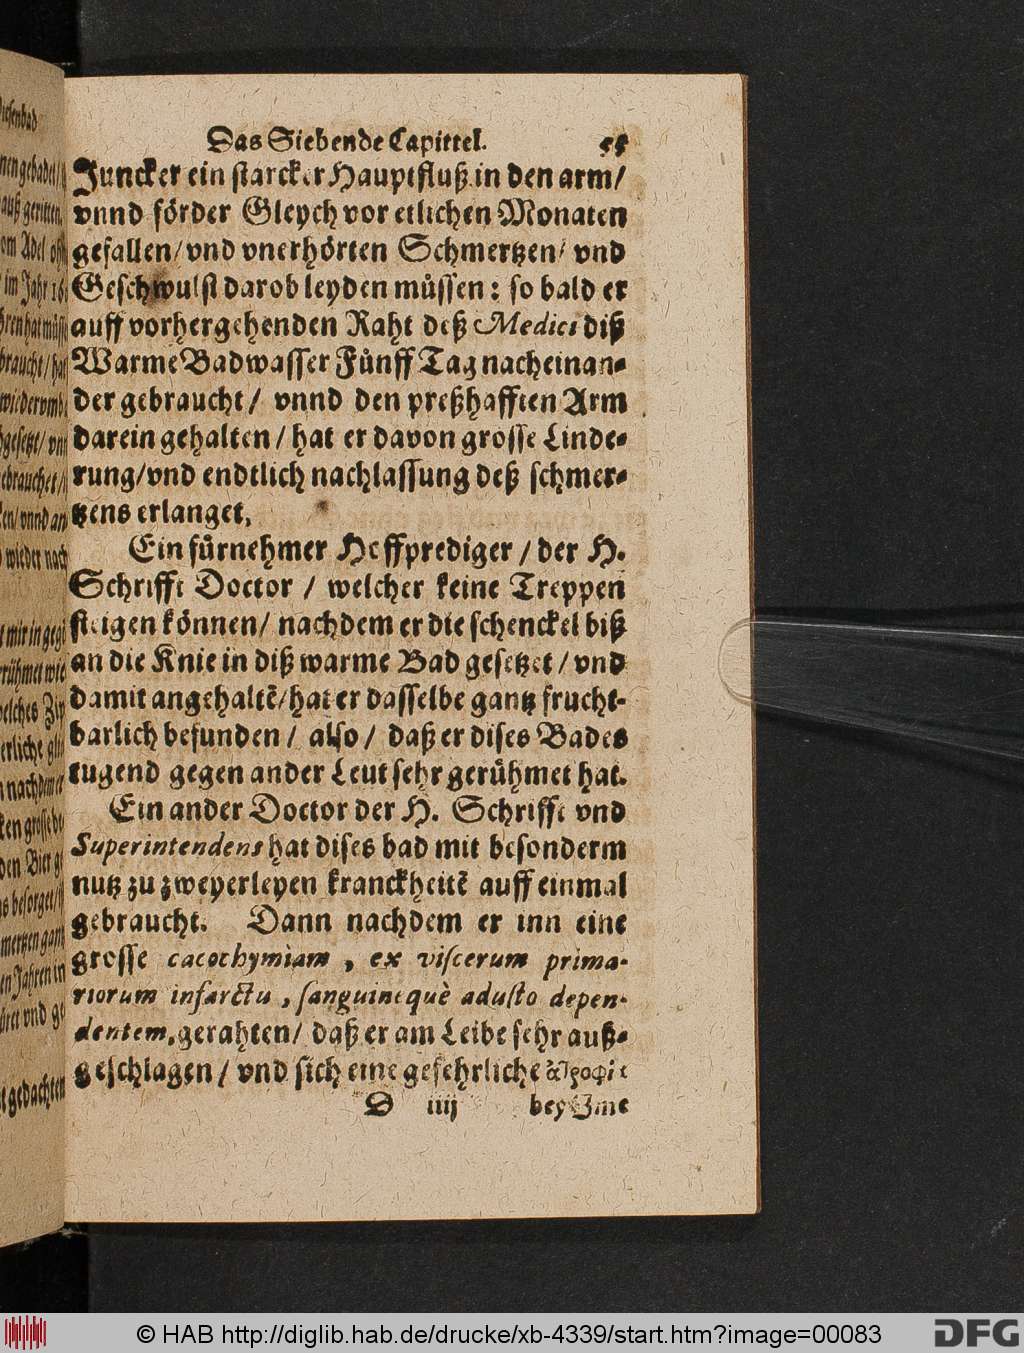 Das Siebende Capittel. 55
Juncker ein starcker Hauptfluß in den arm/
vnnd förder Gleych vor etlichen Monaten
gefallen/ vnd vnerhörten Schmertzen/ vnd
Geschwulst darob leyden müssen: so bald er
auff vorhergehenden Raht deß Medici diß
Warme Badwasser Fünff Tag nacheinan-
der gebraucht/ vnnd den preßhafften Arm
darein gehalten/ hat er davon grosse Linde-
rung/ vnd endtlich nachlassung deß schmer-
tzens erlanget.
Ein fürnehmer Hoffprediger/ der H.
Schrifft Doctor/ welcher keine Treppen
steigen können/ nachdem er die schenckel biß
an die Knie in diß warme Bad gesetzet/ vnd
damit angehaltē/ hat er dasselbe gantz frucht-
barlich befunden/ also/ daß er dises Bades
tugend gegen ander Leut sehr gerühmet hat.
Ein ander Doctor der H. Schrifft vnd
Superintendens hat dises bad mit besonderm
nutz zu zweyerleyen kranckheitē auff einmal
gebraucht. Dann nachdem er inn eine
grosse cacochymiam, ex viscerum prima-
riorum infarctu, sanguineque adusto depen-
dentem, gerahten/ daß er am Leibe sehr auß-
geschlagen/ vnd sich eine gefehrliche
D iiij bey
im Jahr
wieder nach
gedachten
© HAB http://diglib.hab.de/drucke/xb-4339/start.htm?image=00083
DFG